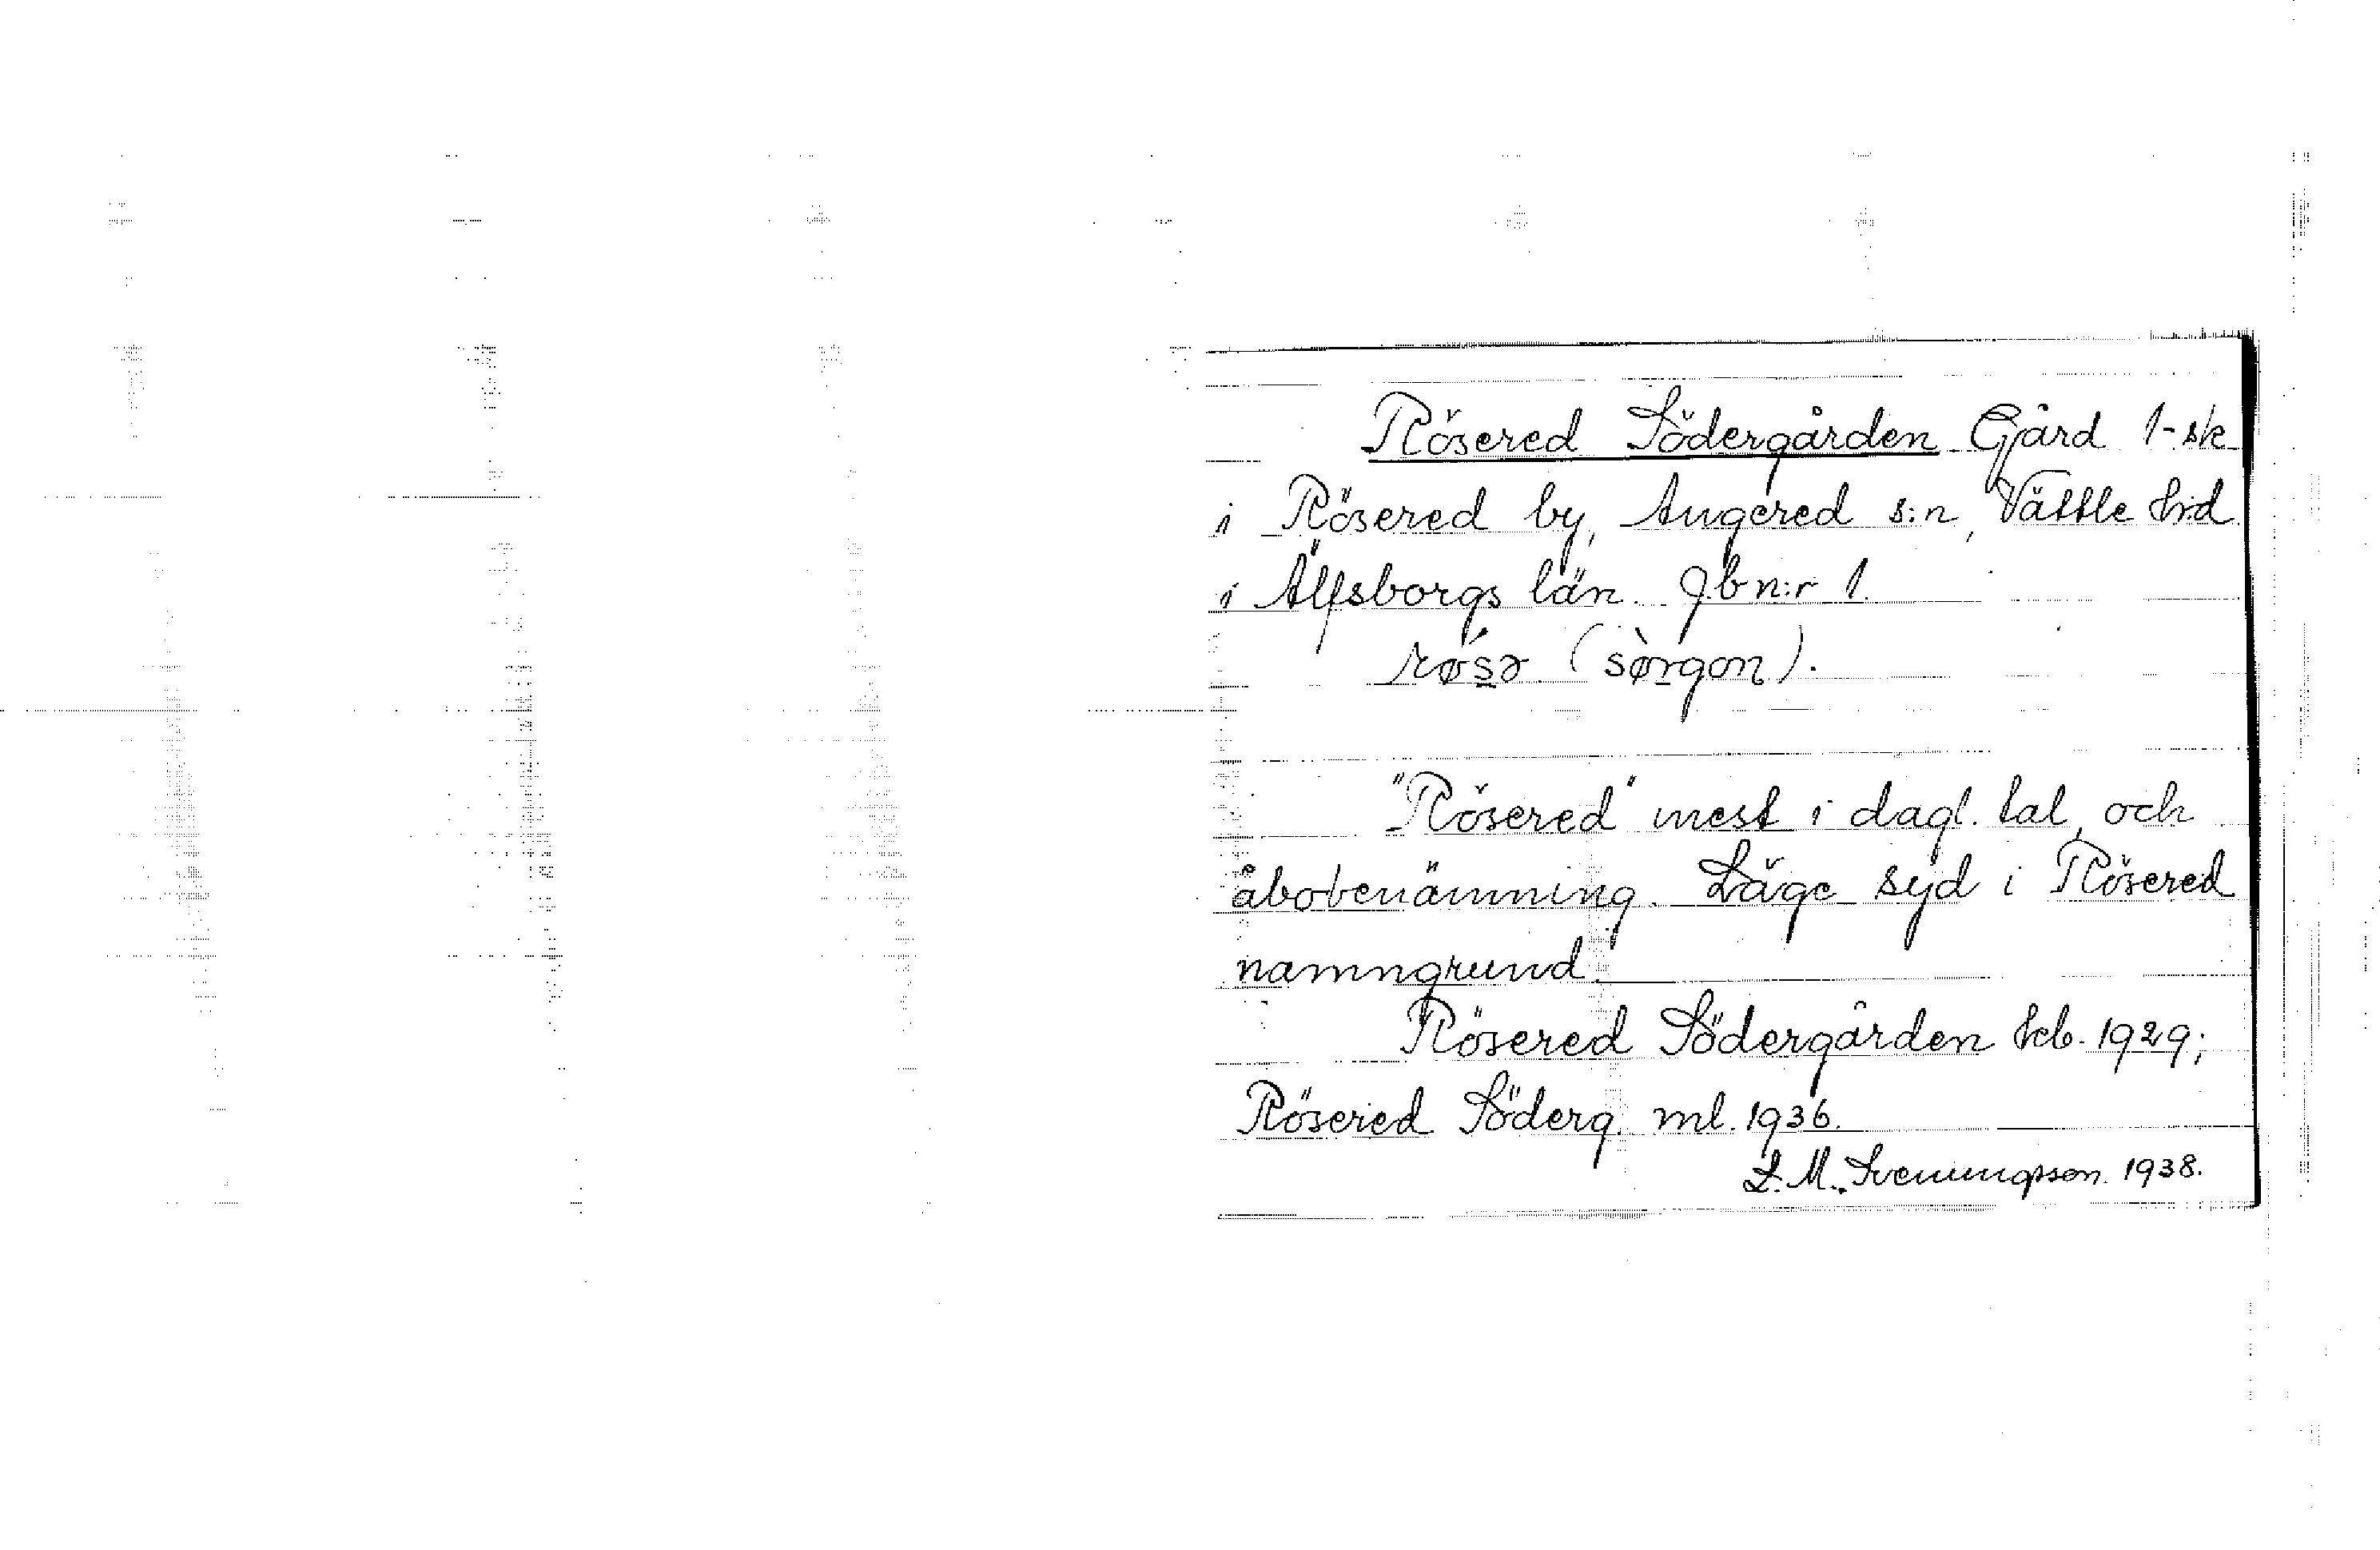 Rösered Södergården Gård 1-sk
i Rösered by, Angered s:n, Vättle hrd
i Älfsborgs län. Jb n:r 1.
(sørgon).
"Rösered" mest i dagl. tal, och
åbobenämning. Läge syd i Rösered
namngrund.
Rösered Södergården 1929;
Rösered Söderg. ml. 1936.
L. M. Sveningsson. 1938.